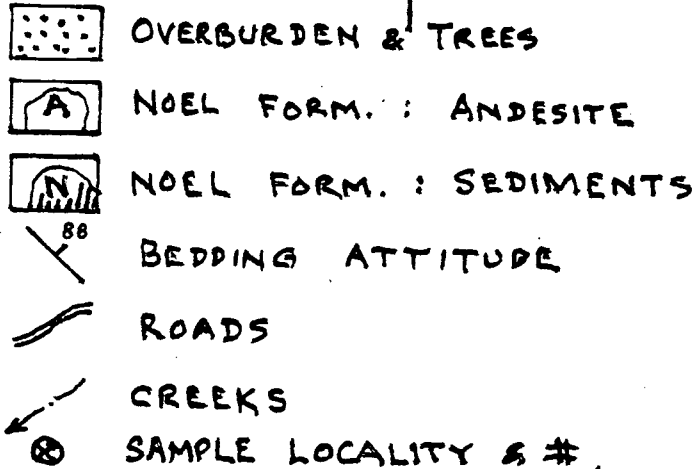 OVERBURDEN & TREES
A NOEL FORM. : ANDESITE
N NOEL FORM. : SEDIMENTS
88 BEDDING ATTITUDE
ROADS
CREEKS
SAMPLE LOCALITY & #